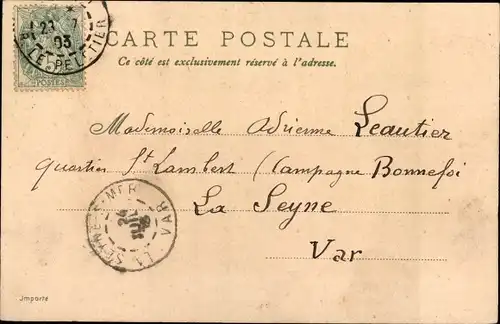 CARTE POSTALE
Ce côté est exclusivement réservé à l'adresse.
23 7
03
LE PELETIER
5
POSTES
Mademoiselle Adrienne Leautier
quartier St Lambert (Campagne Bonnefoi
La Seyne
Var
LA SEYNE-S-MER
VAR
24
JUIL
Importé